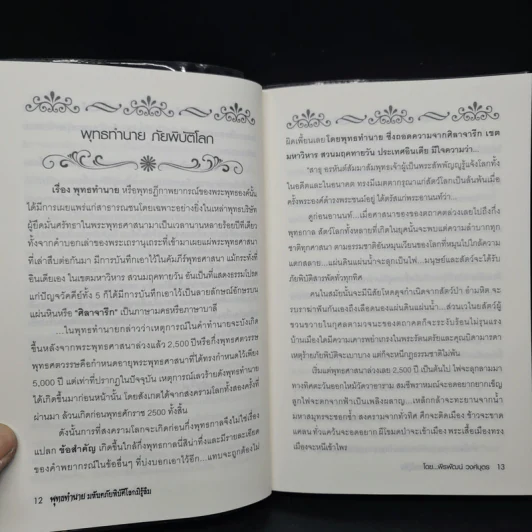 พุทธทำนาย ภัยพิบัติโลก
เรื่อง พุทธทำนาย หรือพุทธฎีกาพยากรณ์ของพระพุทธองค์นั้น
ได้มีการเผยแพร่แก่สาธารณชนโดยเฉพาะอย่างยิ่งในเหล่าพุทธบริษัท
ผู้ยึดมั่นศรัทธาในพระพุทธศาสนามาเป็นเวลานานหลายร้อยปีทีเดียว
ทั้งจากคำบอกเล่าของพระเถรานุเถระที่เข้ามาเผยแผ่พระพุทธศาสนา
ที่เล่าสืบต่อกันมา มีการบันทึกเอาไว้ในคัมภีร์พุทธศาสนา แม้กระทั่งที่
อินเดียเอง ในเชตมหาวิหาร สวนมฤคทายวัน อันเป็นที่แสดงธรรมโปรด
แก่ปัญจวัคคีย์ทั้ง 5 ก็ได้มีการบันทึกเอาไว้เป็นลายลักษณ์อักษรบน
แผ่นหินหรือ "ศิลาจารึก" เป็นภาษามคธหรือภาษาบาลี
...ในพุทธทำนายกล่าวว่าเหตุการณ์ในคำทำนายจะบังเกิด
ขึ้นหลังจากพระพุทธศาสนาล่วงแล้ว 2,500 ปีหรือกึ่งพุทธศตวรรษ
พุทธศตวรรษคือกำหนดอายุพระพุทธศาสนาที่ได้ทรงกำหนดไว้เพียง
5,000 ปี แต่เท่าที่ปรากฏในปัจจุบัน เหตุการณ์เลวร้ายดังพุทธทำนาย
ได้เกิดขึ้นมาก่อนหน้านั้น โดยสังเกตได้จากสงครามโลกทั้งสองครั้งที่
ผ่านมา ล้วนเกิดก่อนพุทธศักราช 2500 ทั้งสิ้น
ดังนั้นการที่สงครามโลกจะเกิดก่อนกึ่งพุทธกาลจึงไม่ใช่เรื่อง
แปลก ข้อสำคัญ เกิดขึ้นใกล้กึ่งพุทธกาลนี่สิน่าทึ่งและมีรายละเอียด
ของคำพยากรณ์ในข้ออื่นๆ ที่บ่งบอกเอาไว้อีก...แทบจะถูกต้องไม่
12 พุทธทำนาย มหันตภัยพิบัติโลกมิรู้ลืม
ผิดเพี้ยนเลยโดยพุทธทำนาย ซึ่งถอดความจากศิลาจารึก เชต
มหาวิหาร สวนมฤคทายวัน ประเทศอินเดีย มีใจความว่า...
"สาธุ อรหันต์สัมมาสัมพุทธเจ้าผู้เป็นพระสัพพัญญูรู้แจ้งโลกทั้ง
ในอดีตและในอนาคต ทรงมีเมตตากรุณาแก่สัตว์โลกเป็นล้นพ้นเมื่อ
ครั้งพระองค์ดำรงพระชนม์อยู่ ได้ตรัสแก่พระอานนท์ว่า...
ดูก่อนอานนท์...เมื่อศาสนาของของตถาคตล่วงเลยไปถึงกึ่ง
พุทธกาล สัตว์โลกทั้งหลายที่เกิดในยุคนั้นจะพบแต่ความลำบากทุก
ชาติทุกศาสนา ตามธรรมชาติอันหมุนเวียนของโลกที่หมุนไปใกล้ความ
แตกสลาย...แผ่นดินแผ่นน้ำจะลุกเป็นไฟ...มนุษย์และสัตว์จะได้รับ
ภัยพิบัติสารพัดทั่วทุกทิศ
คนในสมัยนั้นจะมีนิสัยโหดดุจกำเนิดจากสัตว์ป่า อำมหิต จะ
รบราฆ่าฟันกันเองถึงเลือดนองแผ่นดินแผ่นน้ำ...ส่วนเวไนยสัตว์ผู้
ขวนขวายในกุศลตามวจนะของตถาคตก็จะระงับร้อนไม่รุนแรง
บ้านเมืองใดมีความเคารพย้ำเกรงในพระรัตนตรัยและคุณบิดามารดา
เหตุร้ายภัยพิบัติจะเบาบาง แต่ก็จะหนีกฎธรรมชาติไม่พ้น
เริ่มแต่พุทธศาสนาล่วงเลย 2,500 ปี เป็นต้นไป ไฟจะลุกลามมา
ทางทิศตะวันออกไหม้วัดวาอาราม สมชีพราหมณ์จะอดอยากยากเข็ญ
ลูกไฟจะตกจากฟ้าเป็นเพลิงผลาญ...เหล็กกล้าจะทะยานจากน้ำ
มหาสมุทรจะชอกช้ำ สงครามจากทั่วทิศ ศึกจะติดเมือง ข้าวจะขาด
แคลน ทั่วแคว้นจะอดอยาก มีโขมดป่าจะเข้าเมือง พระเสื้อเมืองทรง
เมืองจะหนีเข้าไพร
โดย...พีรพัฒน์ วงค์บุตร 13